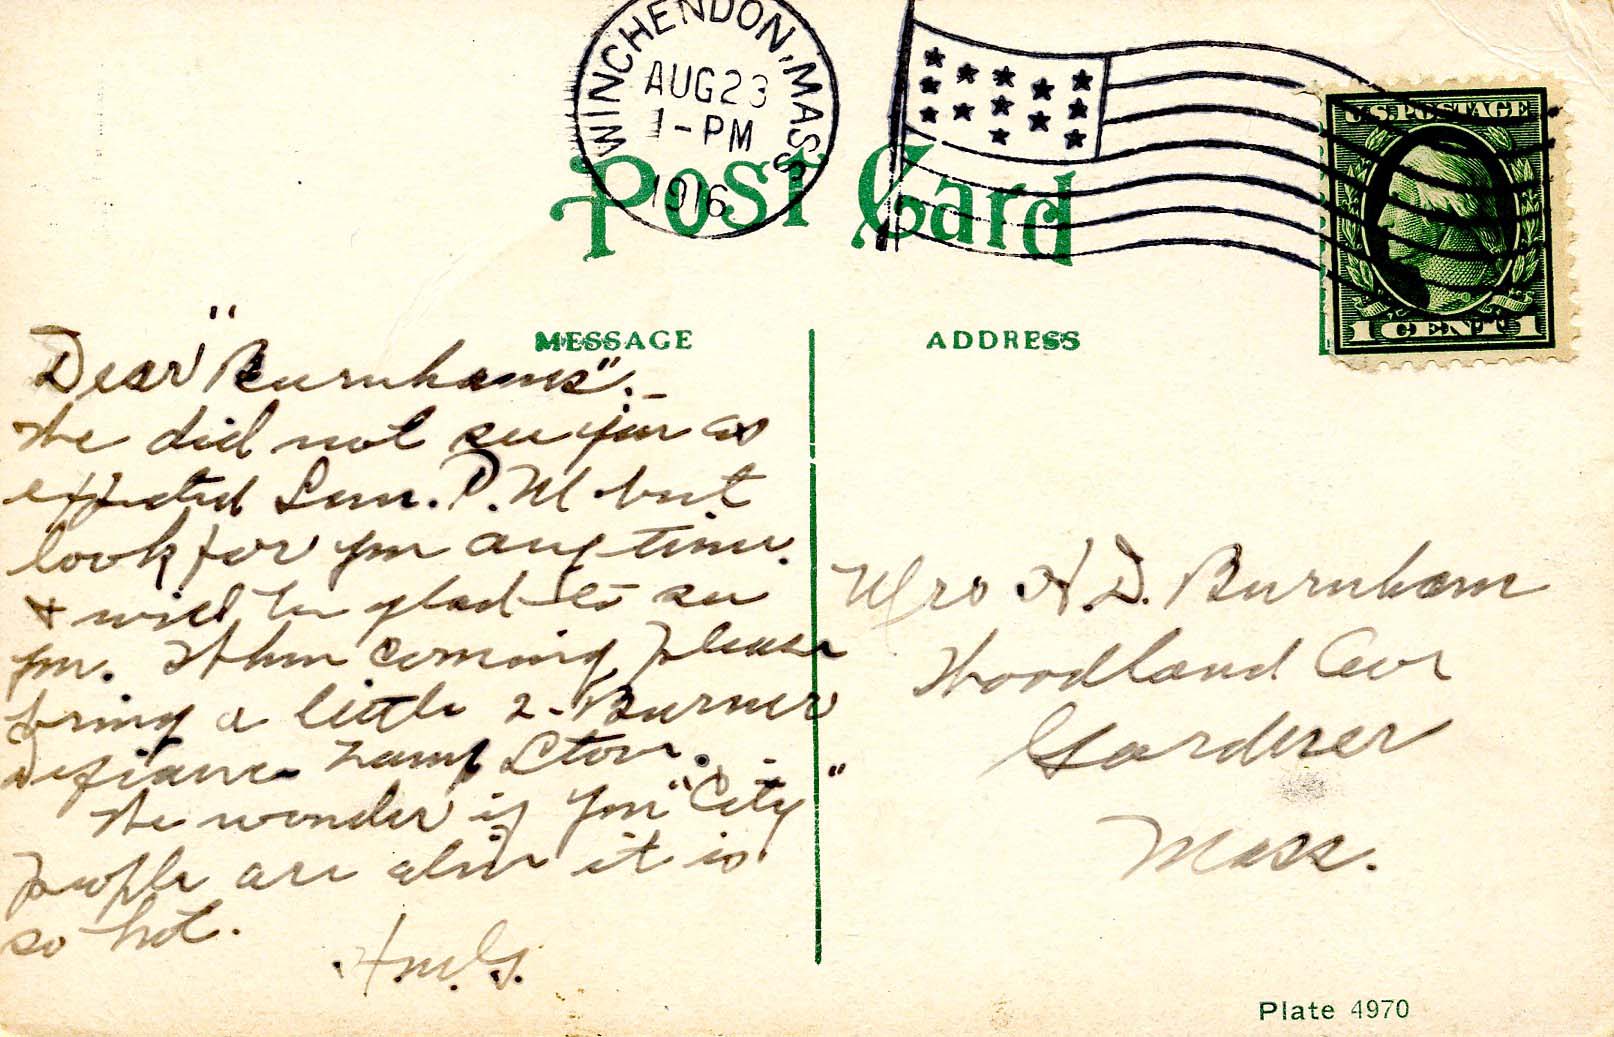 WINCHENDON, MASS
AUG 23
1-PM
1916
Post Card
U.S. POSTAGE
1 CENT 1
MESSAGE
ADDRESS
Dear "Burnhams":-
We did not see you as
expected Sun. P.M. but
look for you any time.
& will be glad to see
you. When coming please
bring a little 2-Burner
Defiance Lamp Stove.
We wonder if you "City"
people are alive it is
so hot.
Mrs H.D. Burnham
Woodland Ave
Gardner
Mass.
Plate 4970